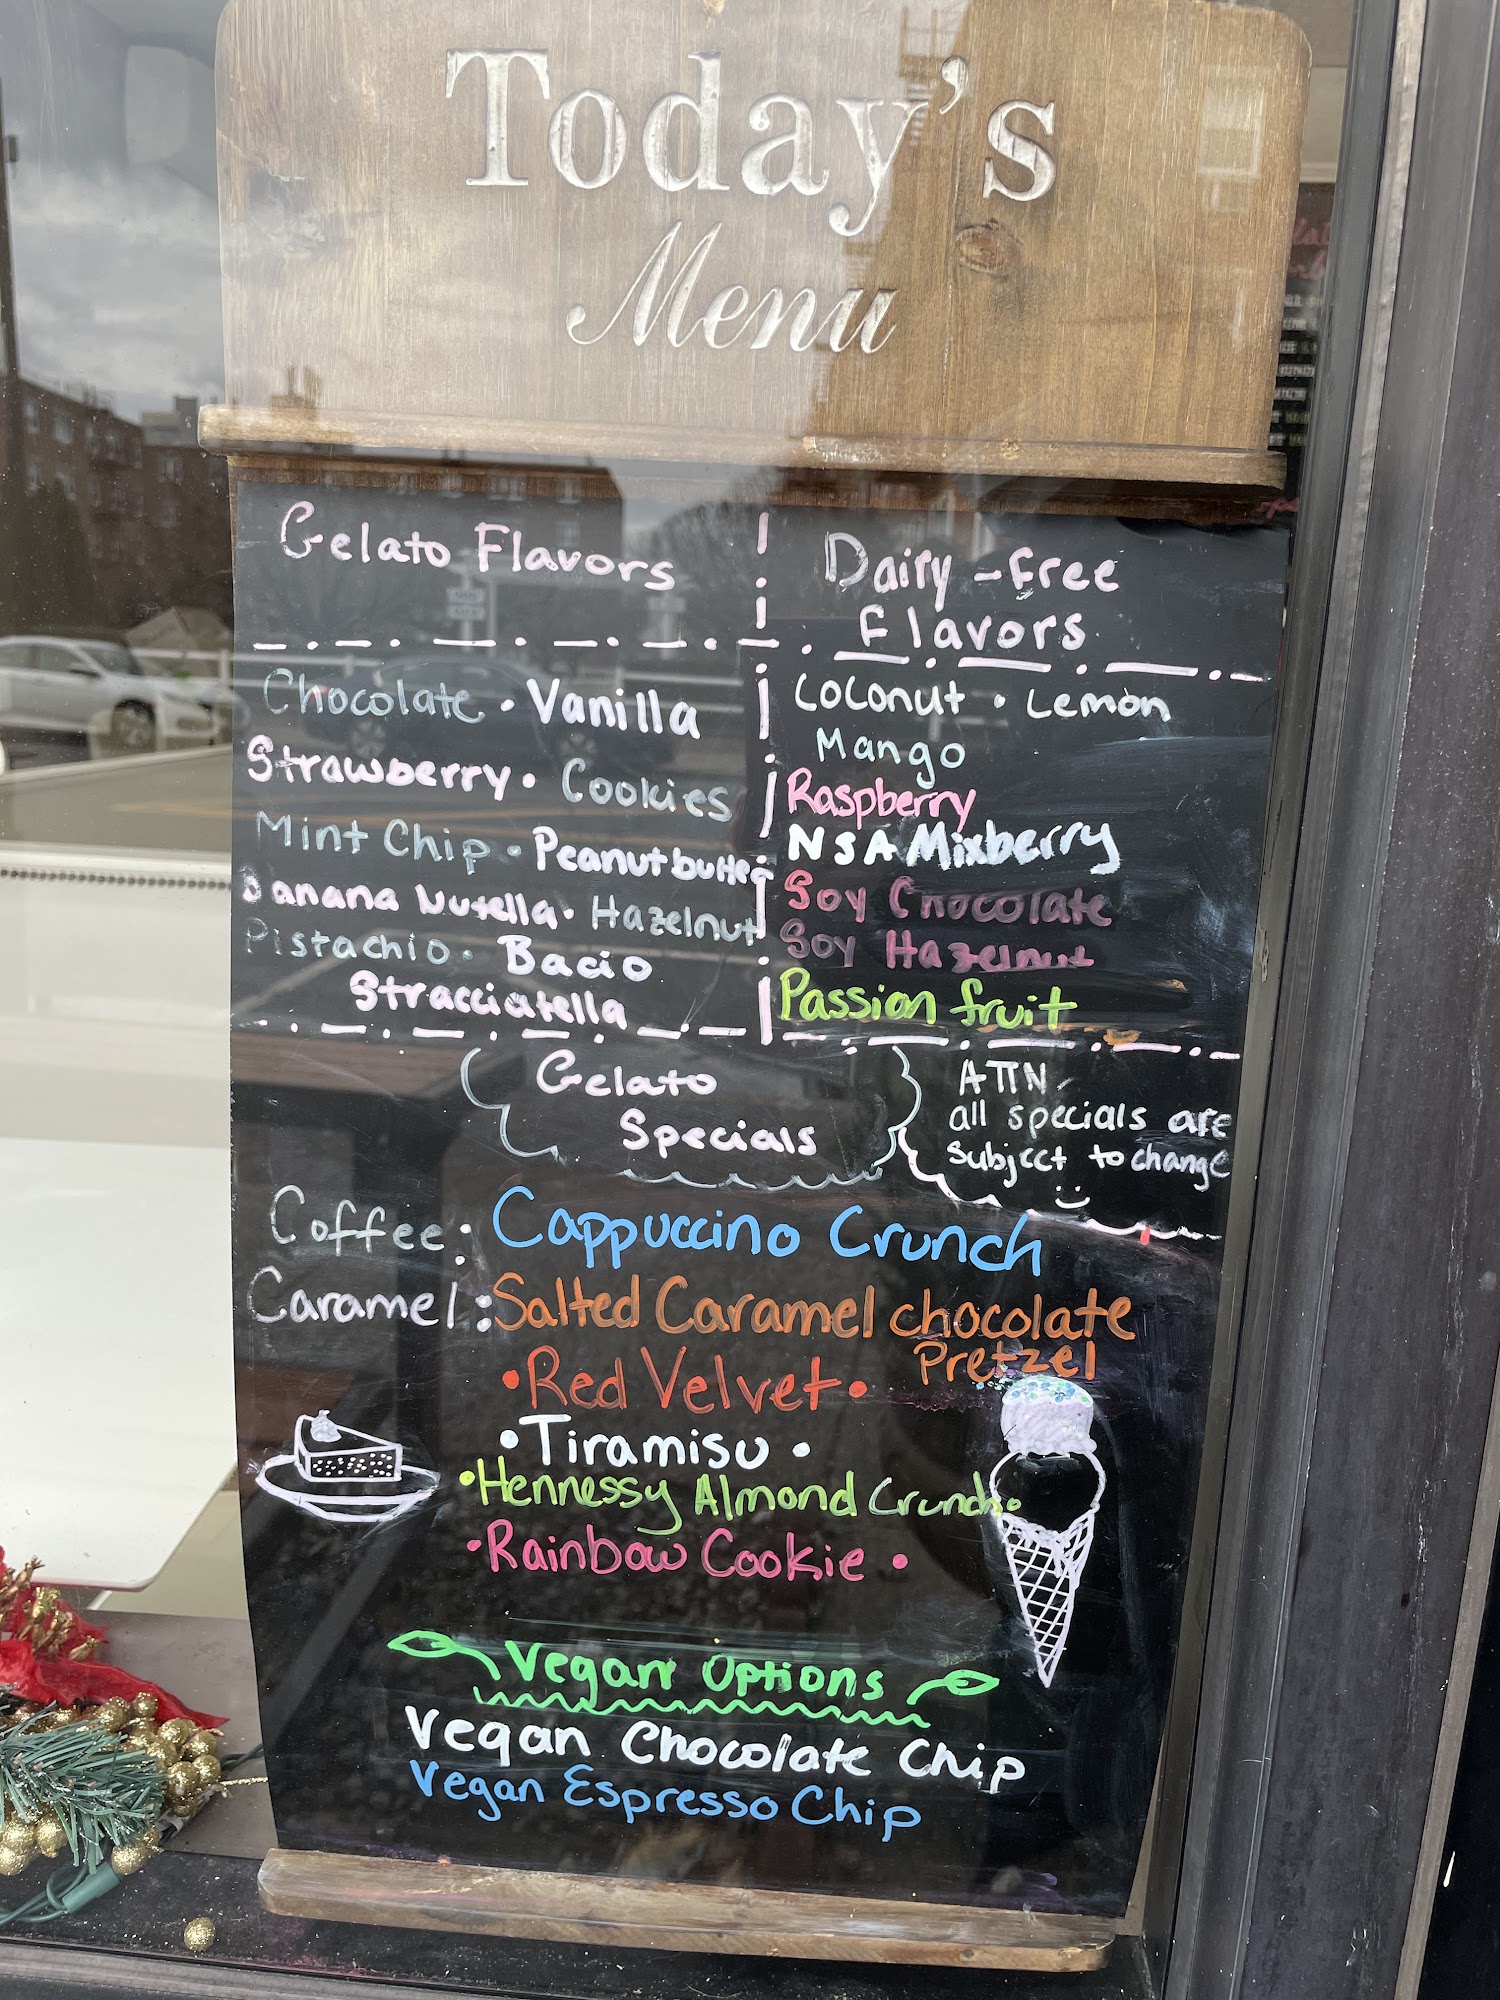 Today's
Menu
Gelato Flavors
Chocolate · Vanilla
Strawberry · Cookies
Mint Chip · Peanut butter
Banana Nutella · Hazelnut
Pistachio · Bacio
Stracciatella
Dairy-free
Flavors
Coconut · Lemon
Mango
Raspberry
NSA Mixberry
Soy Chocolate
Soy Hazelnut
Passion fruit
Gelato
Specials
ATTN
all specials are
subject to change
Coffee: Cappuccino Crunch
Caramel: Salted Caramel chocolate
Pretzel
• Red Velvet •
• Tiramisu •
• Hennessy Almond Crunch •
• Rainbow Cookie •
Vegan Options
Vegan Chocolate Chip
Vegan Espresso Chip